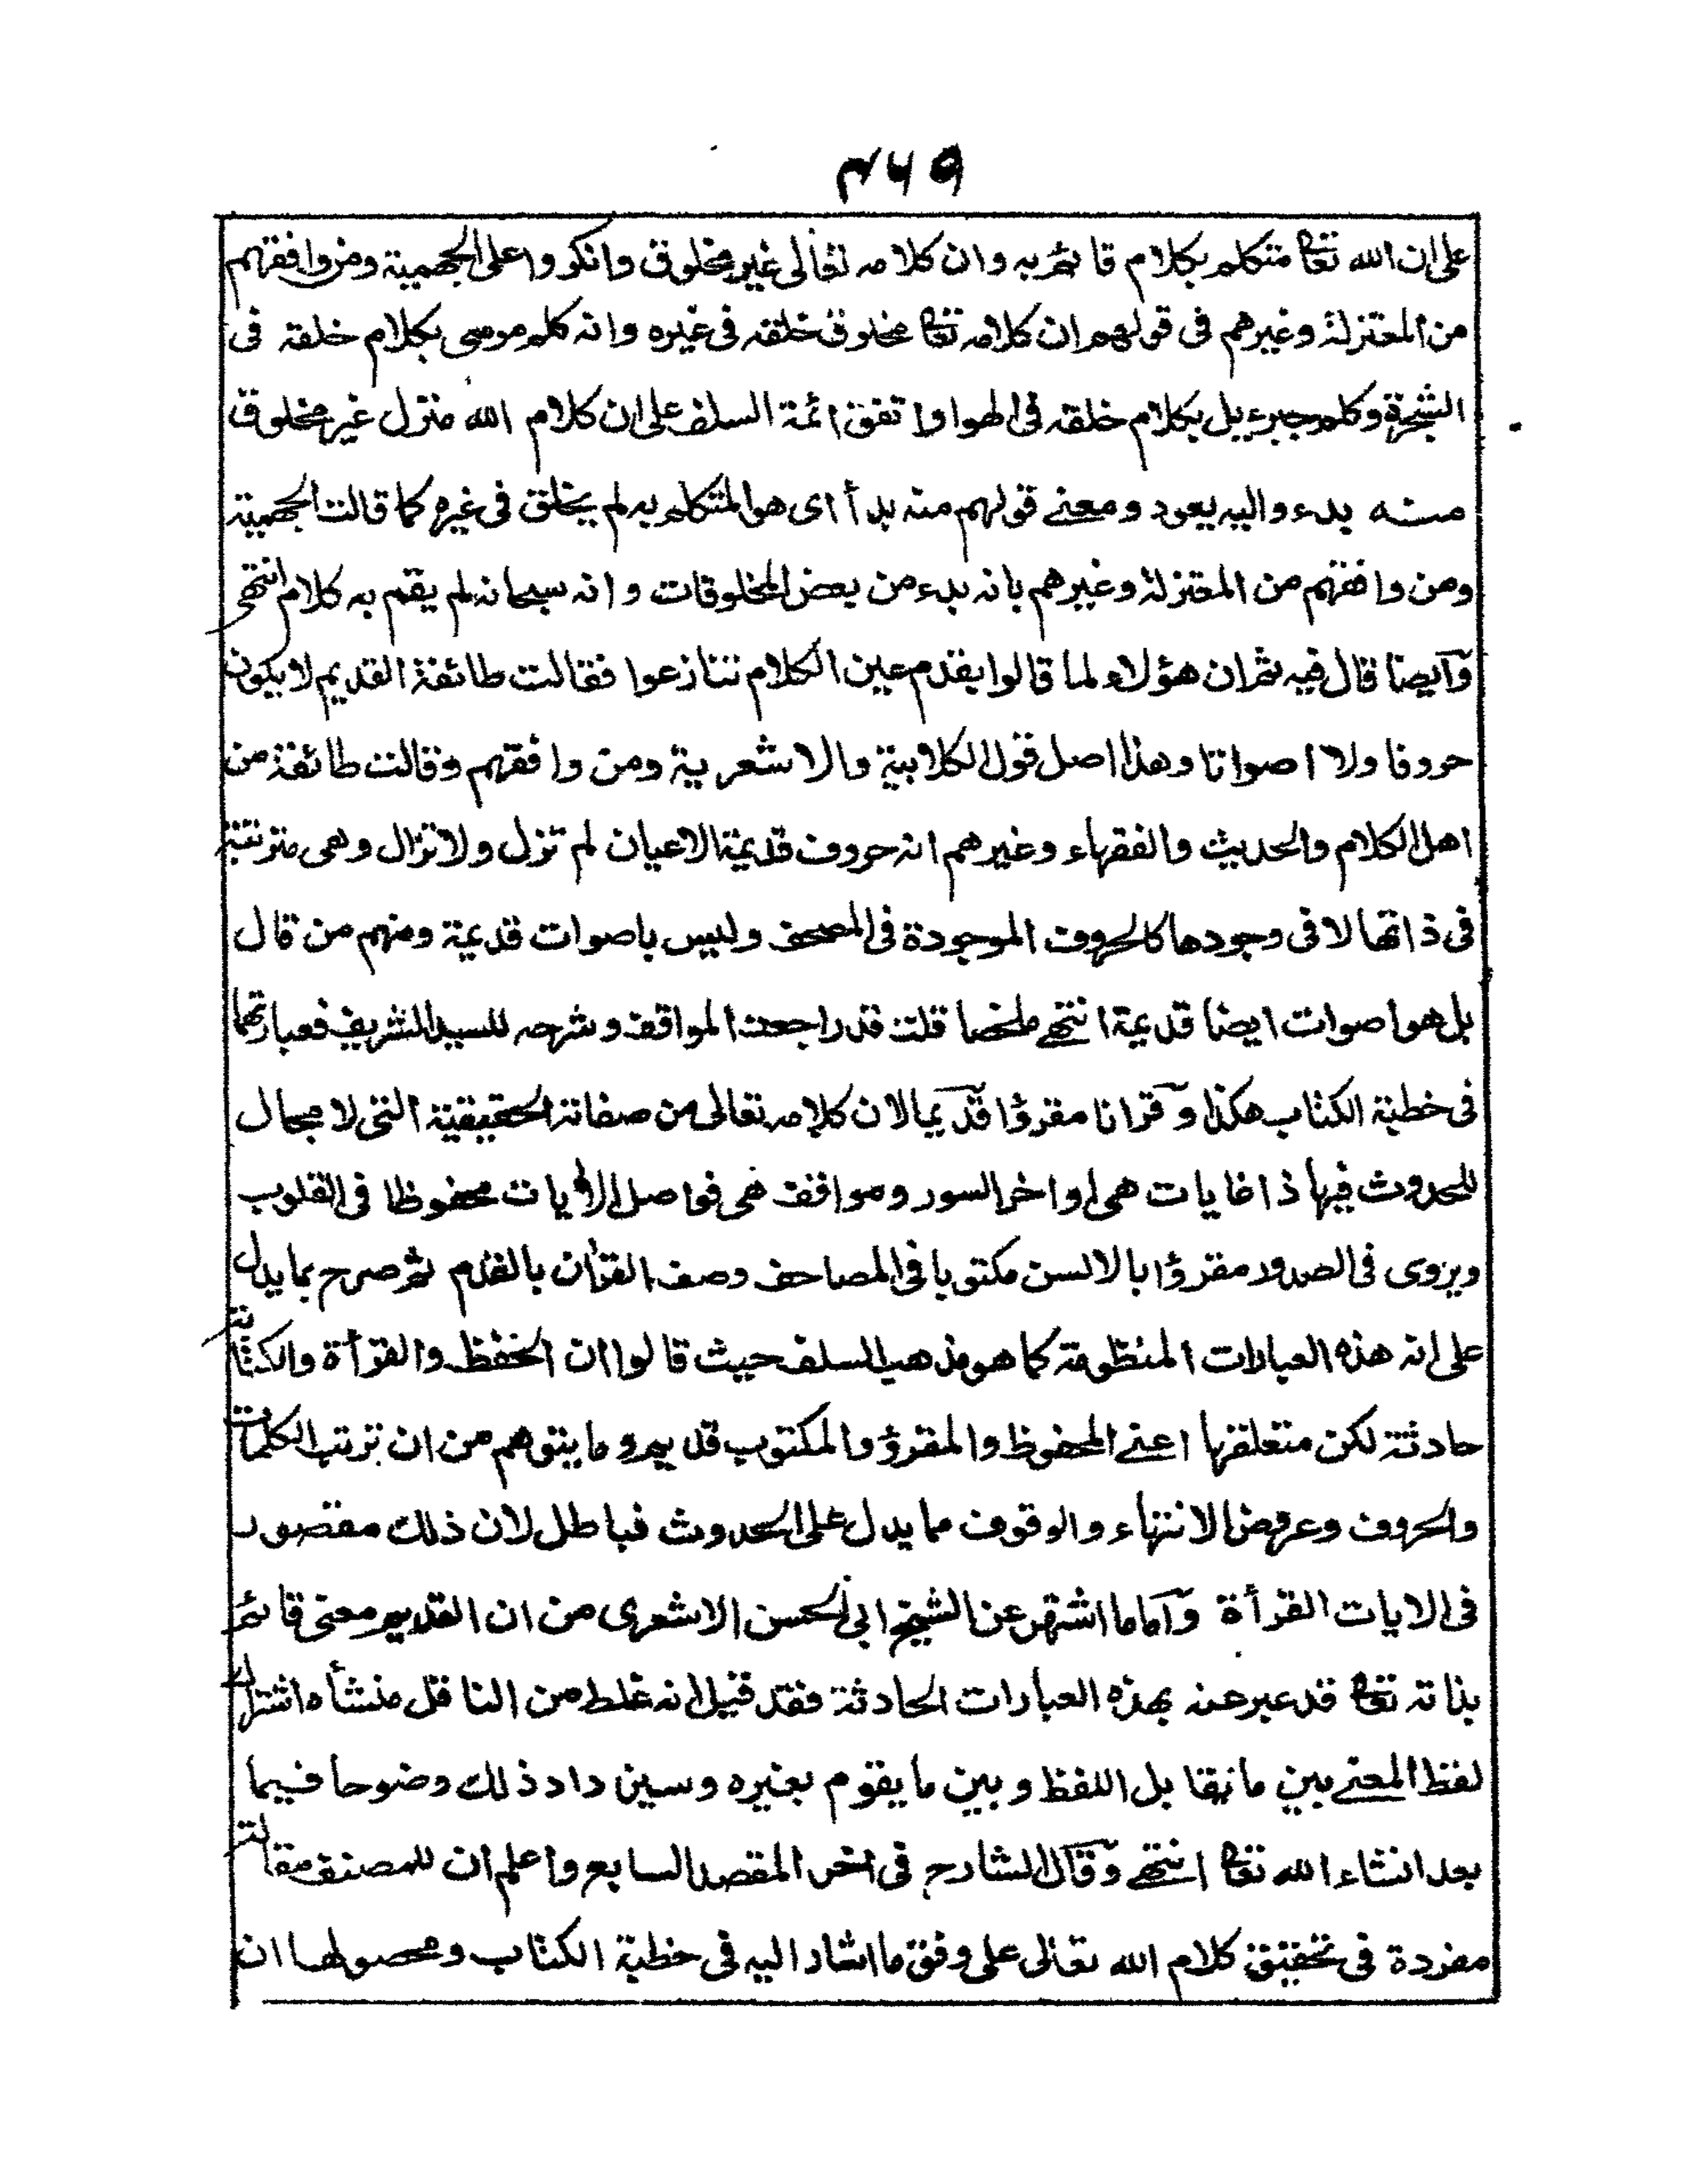 ۳۶۹
على ان الله تعا متكلم بكلام قائم به وان كلامه تعالى غير مخلوق وانكروا على الجهمية ومن وافقهم
من المعتزلة وغيرهم فى قولهم ان كلامه تعا مخلوق خلقه فى غيره وانه كلم موسى بكلام خلقه فى
الشجرة وكلم جبرءيل بكلام خلقه فى الهوا واتفق ائمة السلف على ان كلام الله منزل غير مخلوق
منه بدء واليه يعود ومعنے قولهم منه بدأ اى هو المتكلم به لم يخلق فى غيره كما قالت الجهمية
ومن وافقهم من المعتزلة وغيرهم بانه بدء من بعض المخلوقات وانه سبحانه لم يقم به كلام انتهى
وآيضا قال فيه ثم ان هؤلاء لما قالوا بقدم عين الكلام تنازعوا فقالت طائفة القديم لا يكون
حروفا ولا اصواتا وهذا اصل قول الكلابية والاشعرية ومن وافقهم وقالت طائفة من
اهل الكلام والحديث والفقهاء وغيرهم انه حروف قديمة الاعيان لم تزل ولا تزال وهى مترتبة
فى ذاتها لا فى وجودها كالحروف الموجودة فى المصحف وليس باصوات قديمة ومنهم من قال
بل هو اصوات ايضا قديمة انتهے ملخصا قلت قد راجعت المواقف وشرحه للسيد الشريف فعبارتهما
فى خطبة الكتاب هكذا وٓقرانا مقرؤا قدٓيما لان كلامه تعالى من صفاته الحقيقية التى لا مجال
للحدوث فيها ذا غايات هى اواخر السور ومواقف هى فواصل الايات محفوظا فى القلوب
ويروى فى الصدور مقرؤا بالالسن مكتوبا فى المصاحف وصف القران بالقدم ثم صرح بما يدل
على انه هذه العبارات المنظومة كما هو مذهب السلف حيث قالوا ان الحفظ والقرأة والكتابة
حادثة لكن متعلقها اعنے المحفوظ والمقرؤ والمكتوب قديم وما يتوهم من ان ترتب الكلمات
والحروف وعروض الانتهاء والوقوف مما يدل على الحدوث فباطل لان ذلك مقصور
فى الايات القرأة وآما ما اشتهر عن الشيخ ابى الحسن الاشعرى من ان القديم معنى قائم
بذاته تعا قد عبر عنه بهذه العبارات الحادثة فقد قيل انه غلط من الناقل منشأه اشتراك
لفظ المعنے بين ما يقابل اللفظ وبين ما يقوم بغيره وسين داد ذلك وضوحا فيما
بعد انشاء الله تعا انتهے وٓقال الشارح فى اخر المقصد السابع واعلم ان للمصنف مقالة
مفردة فى تحقيق كلام الله تعالى على وفق ما اشار اليه فى خطبة الكتاب ومحصولها ان